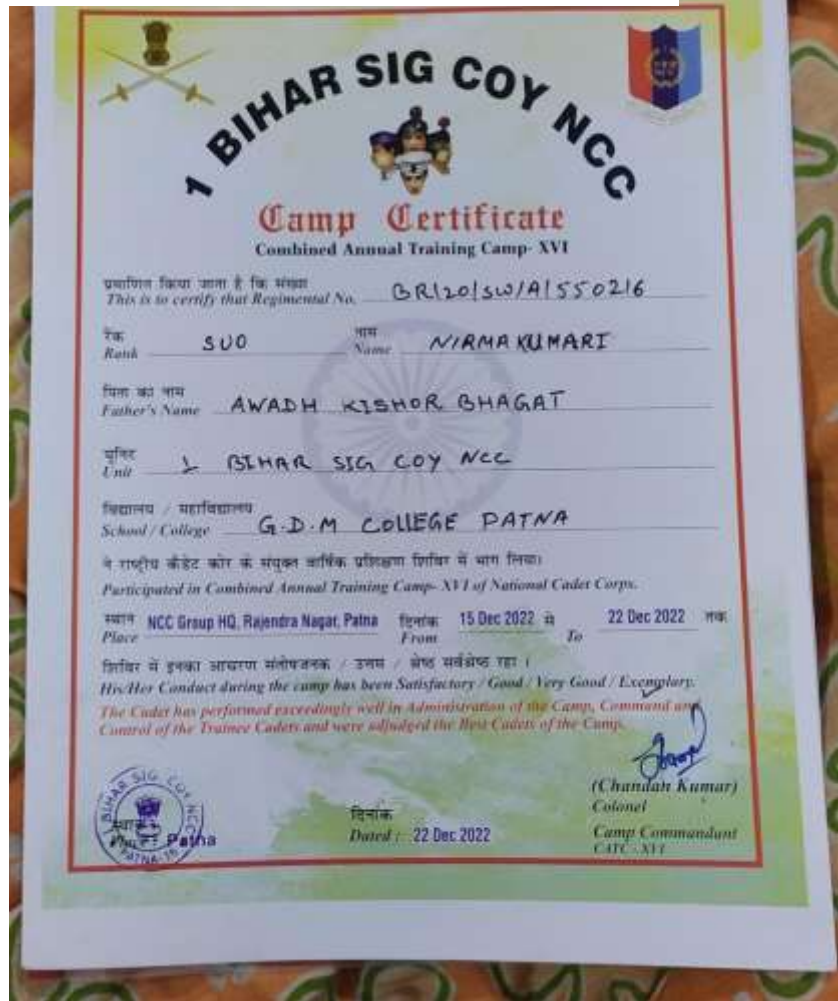 1 BIHAR SIG COY NCC
Camp Certificate
Combined Annual Training Camp- XVI
प्रमाणित किया जाता है कि संख्या
This is to certify that Regimental No. BR/20/SW/A/550216
रैंक नाम
Rank SUO Name NIRMA KUMARI
पिता का नाम
Father's Name AWADH KISHOR BHAGAT
यूनिट
Unit 1 BIHAR SIG COY NCC
विद्यालय / महाविद्यालय
School / College G.D.M COLLEGE PATNA
ने राष्ट्रीय कैडेट कोर के संयुक्त वार्षिक प्रशिक्षण शिविर में भाग लिया।
Participated in Combined Annual Training Camp- XVI of National Cadet Corps.
स्थान NCC Group HQ, Rajendra Nagar, Patna दिनांक 15 Dec 2022 से 22 Dec 2022 तक
Place From To
शिविर में इनका आचरण संतोषजनक / उत्तम / श्रेष्ठ सर्वश्रेष्ठ रहा ।
His/Her Conduct during the camp has been Satisfactory / Good / Very Good / Exemplary.
The Cadet has performed exceedingly well in Administration of the Camp, Command and
Control of the Trainee Cadets and were adjudged the Best Cadets of the Camp.
1 BIHAR SIG. COY NCC
PATNA-16
स्थान
Place : Patna
दिनांक
Dated : 22 Dec 2022
(Chandan Kumar)
Colonel
Camp Commandant
CATC - XVI